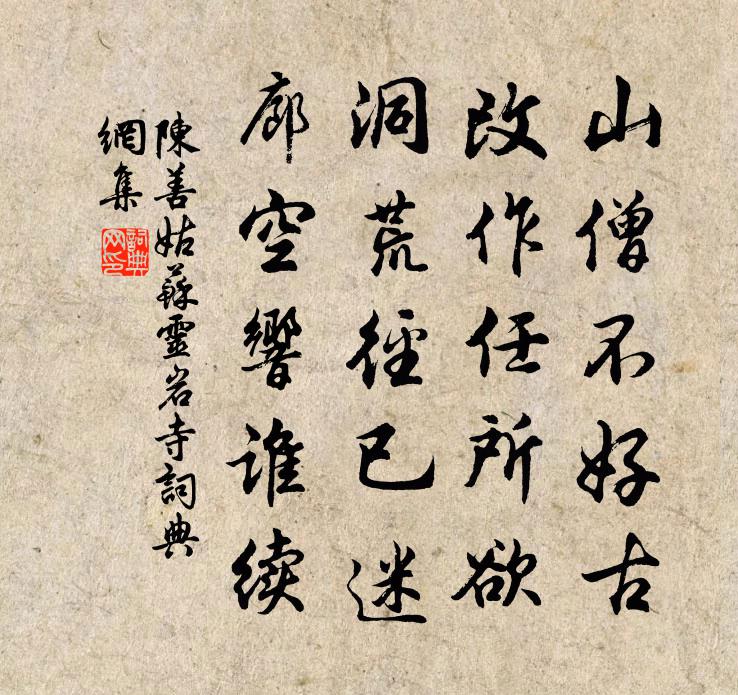 山僧不好古
改作任所欲
洞荒径已迷
廊空響誰续
陳善姑蘇靈岩寺詞典
網集
詞典
网印